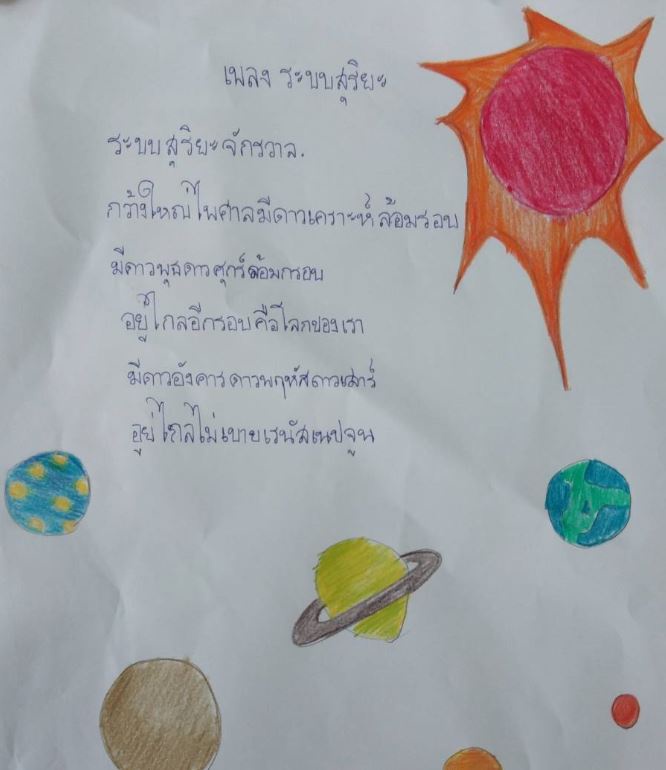 เพลง ระบบสุริยะ
ระบบสุริยะจักรวาล.
กว้างใหญ่ไพศาลมีดาวเคราะห์ล้อมรอบ
มีดาวพุธดาวศุกร์ล้อมกรอบ
อยู่ไกลอีกรอบคือโลกของเรา
มีดาวอังคารดาวพฤหัสดาวเสาร์
อยู่ไกลไม่เบา